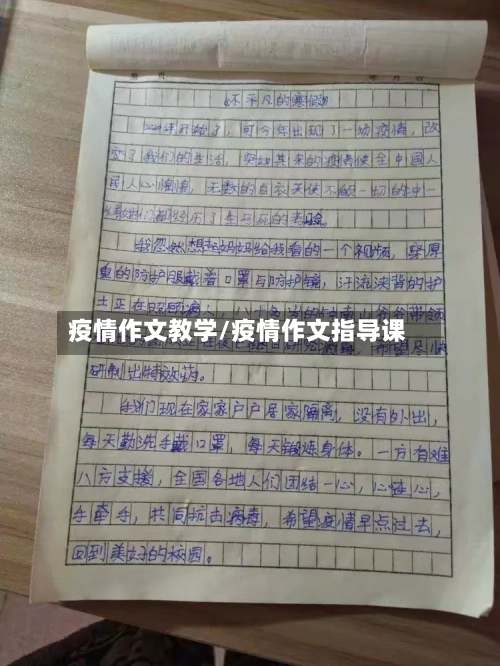 年 月 日
《不平凡的寒假》
2020年开始了,可今年出现了一场疫情,改
变了我们的生活,突如其来的疫情使全中国人
民人心惶惶,无数的白衣天使不顾一切的冲一
线,他们都经历了生与死的考验。
我忽然想起妈妈给我看的一个视频,穿厚
重的防护服戴着口罩与防护镜,汗流浃背的护
士正在照顾病
疫情作文教学/疫情作文指导课
研制出特效药。
我们现在家家户户居家隔离,没有外出,
每天勤洗手戴口罩,每天锻炼身体。一方有难
八方支援,全国各地人们团结一心,心连心,
手牵手,共同抗击病毒,希望疫情早点过去,
回到美好的校园。